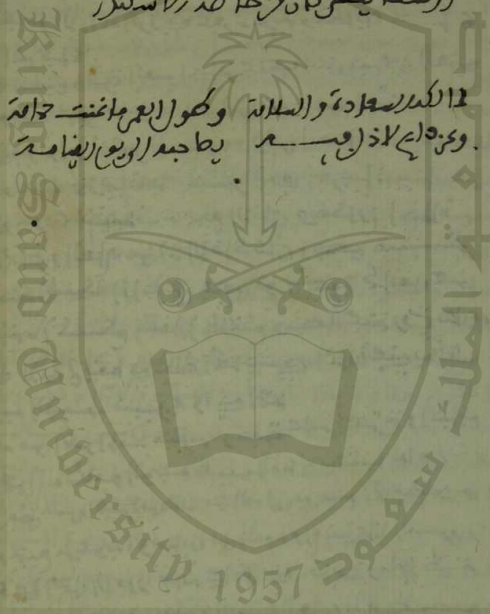 لمالكه السعادة والسلامة وطول العمر ما غنت حمامة
وعز دايم لا ذل فيه يصاحبه الى يوم القيامة
King Saud University
1957
جامعة الملك سعود